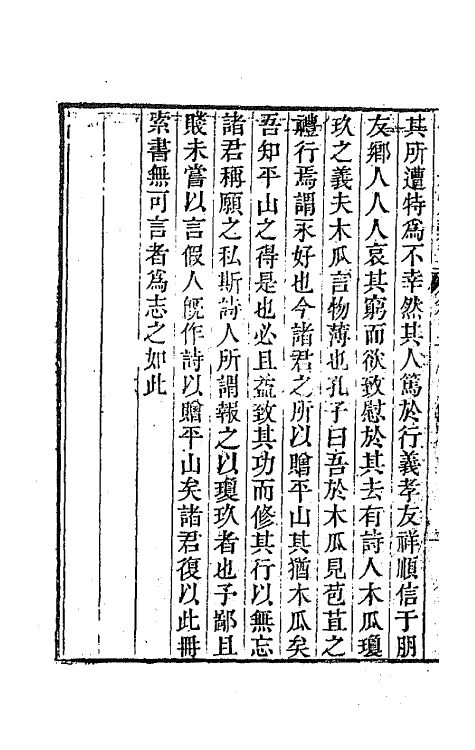 其所遭特為不幸然其人篤於行義孝友祥順信于朋
友鄉人人人哀其窮而欲致慰於其去有詩人木瓜瓊
玖之義夫木瓜言物薄也孔子曰吾於木瓜見苞苴之
禮行焉謂永好也今諸君之所以贈平山其猶木瓜矣
吾知平山之得是也必且益致其功而修其行以無忘
諸君稱願之私斯詩人所謂報之以瓊玖者也予鄙且
賤未嘗以言假人旣作詩以贈平山矣諸君復以此冊
索書無可言者為志之如此